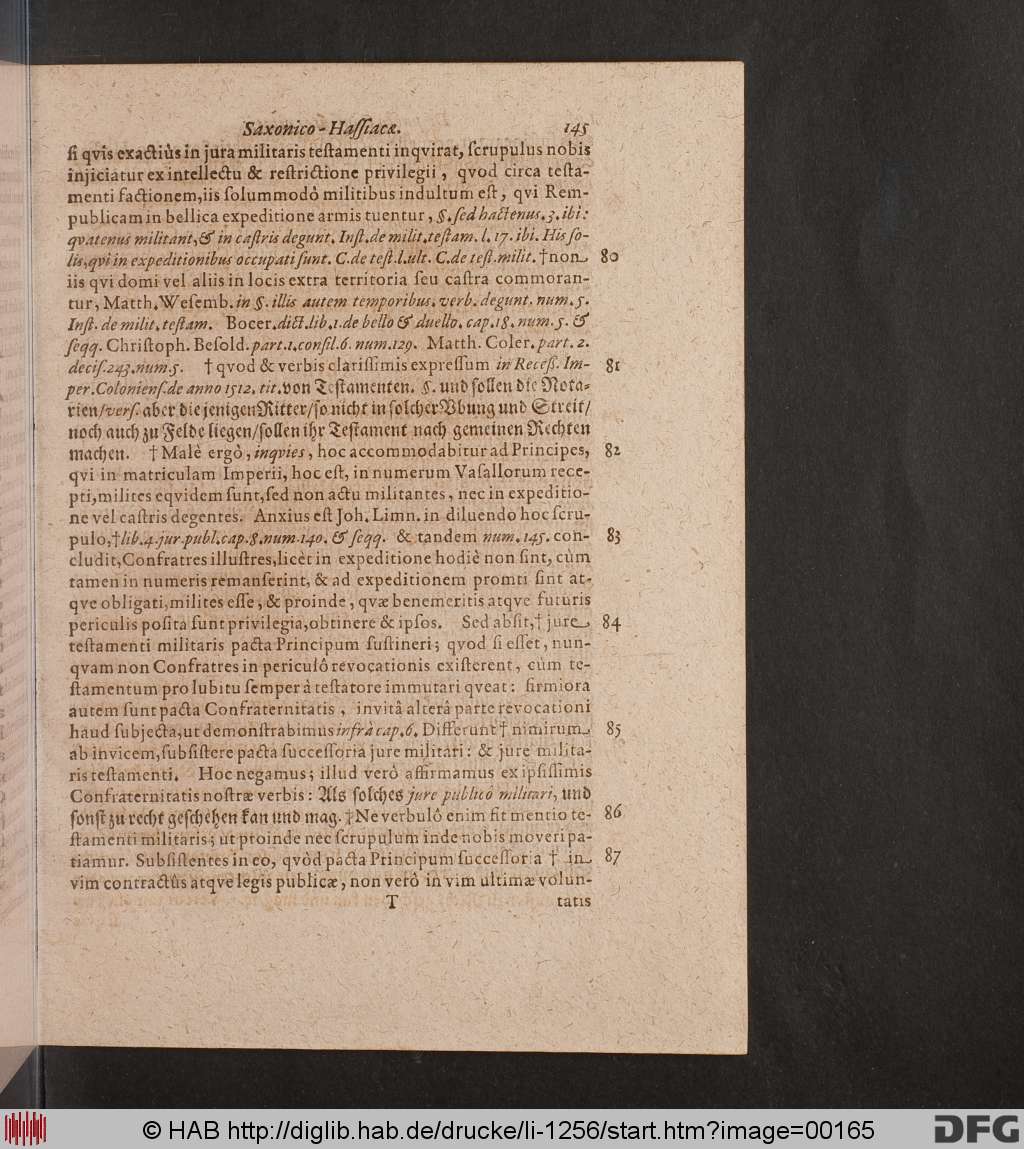 Saxonico-Haſſiacæ. 145
ſi qvis exactiùs in jura militaris teſtamenti inqvirat, ſcrupulus nobis
injiciatur ex intellectu & reſtrictione privilegii, qvod circa teſta-
menti factionem, iis ſolummodò militibus indultum eſt, qvi Rem-
publicam in bellica expeditione armis tuentur, §. ſed hactenus. 3. ibi:
qvatenus militant, & in caſtris degunt. Inſt. de milit. teſtam. l. 17. ibi. His ſo-
lis, qvi in expeditionibus occupati ſunt. C. de teſt. l. ult. C. de teſt. milit. †non 80
iis qvi domi vel aliis in locis extra territoria ſeu caſtra commoran-
tur, Matth. Weſemb. in §. illis autem temporibus. verb. degunt. num. 5.
Inſt. de milit. teſtam. Bocer. dict. lib. 1. de bello & duello. cap. 18. num. 5. &
ſeqq. Chriſtoph. Beſold. part. 1. conſil. 6. num. 129. Matth. Coler. part. 2.
deciſ. 243. num. 5. † qvod & verbis clariſſimis expreſſum in Receſſ. Im- 81
per. Colonienſ. de anno 1512. tit. von Teſtamenten. §. und ſollen die Nota-
rien/ verſ. aber die jenigen Ritter/ ſo nicht in ſolcher Vbung und Streit/
noch auch zu Felde liegen/ ſollen ihr Teſtament nach gemeinen Rechten
machen. † Malè ergò, inqvies, hoc accommodabitur ad Principes, 82
qvi in matriculam Imperii, hoc eſt, in numerum Vaſallorum rece-
pti, milites eqvidem ſunt, ſed non actu militantes, nec in expeditio-
ne vel caſtris degentes. Anxius eſt Joh. Limn. in diluendo hoc ſcru-
pulo, † lib. 4. jur. publ. cap. 8. num. 140. & ſeqq. & tandem num. 145. con- 83
cludit, Confratres illuſtres, licèt in expeditione hodiè non ſint, cùm
tamen in numeris remanſerint, & ad expeditionem promti ſint at-
qve obligati, milites eſſe, & proinde, qvæ benemeritis atqve futuris
periculis poſita ſunt privilegia, obtinere & ipſos. Sed abſit, † jure 84
teſtamenti militaris pacta Principum ſuſtineri; qvod ſi eſſet, nun-
qvam non Confratres in periculô revocationis exiſterent, cùm te-
ſtamentum pro lubitu ſemper â teſtatore immutari qveat: firmiora
autem ſunt pacta Confraternitatis, invitâ alterâ parte revocationi
haud ſubjecta, ut demonſtrabimus infrà cap. 6. Differunt † nimirum 85
ab invicem, ſubſiſtere pacta ſucceſſoria jure militari: & jure milita-
ris teſtamenti. Hoc negamus; illud verò affirmamus ex ipſiſſimis
Confraternitatis noſtræ verbis: Als ſolches jure publicô militari, und
ſonſt zu recht geſchehen kan und mag. † Ne verbulô enim fit mentio te- 86
ſtamenti militaris; ut proinde nec ſcrupulum inde nobis moveri pa-
tiamur. Subſiſtentes in eo, qvòd pacta Principum ſucceſſoria † in 87
vim contractûs atqve legis publicæ, non verò in vim ultimæ volun-
T tatis
© HAB http://diglib.hab.de/drucke/li-1256/start.htm?image=00165
DFG